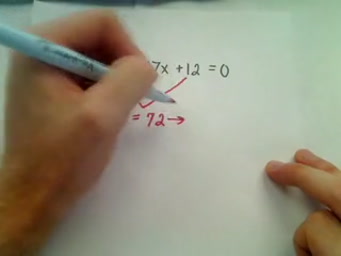 7x + 12 = 0
= 72 →